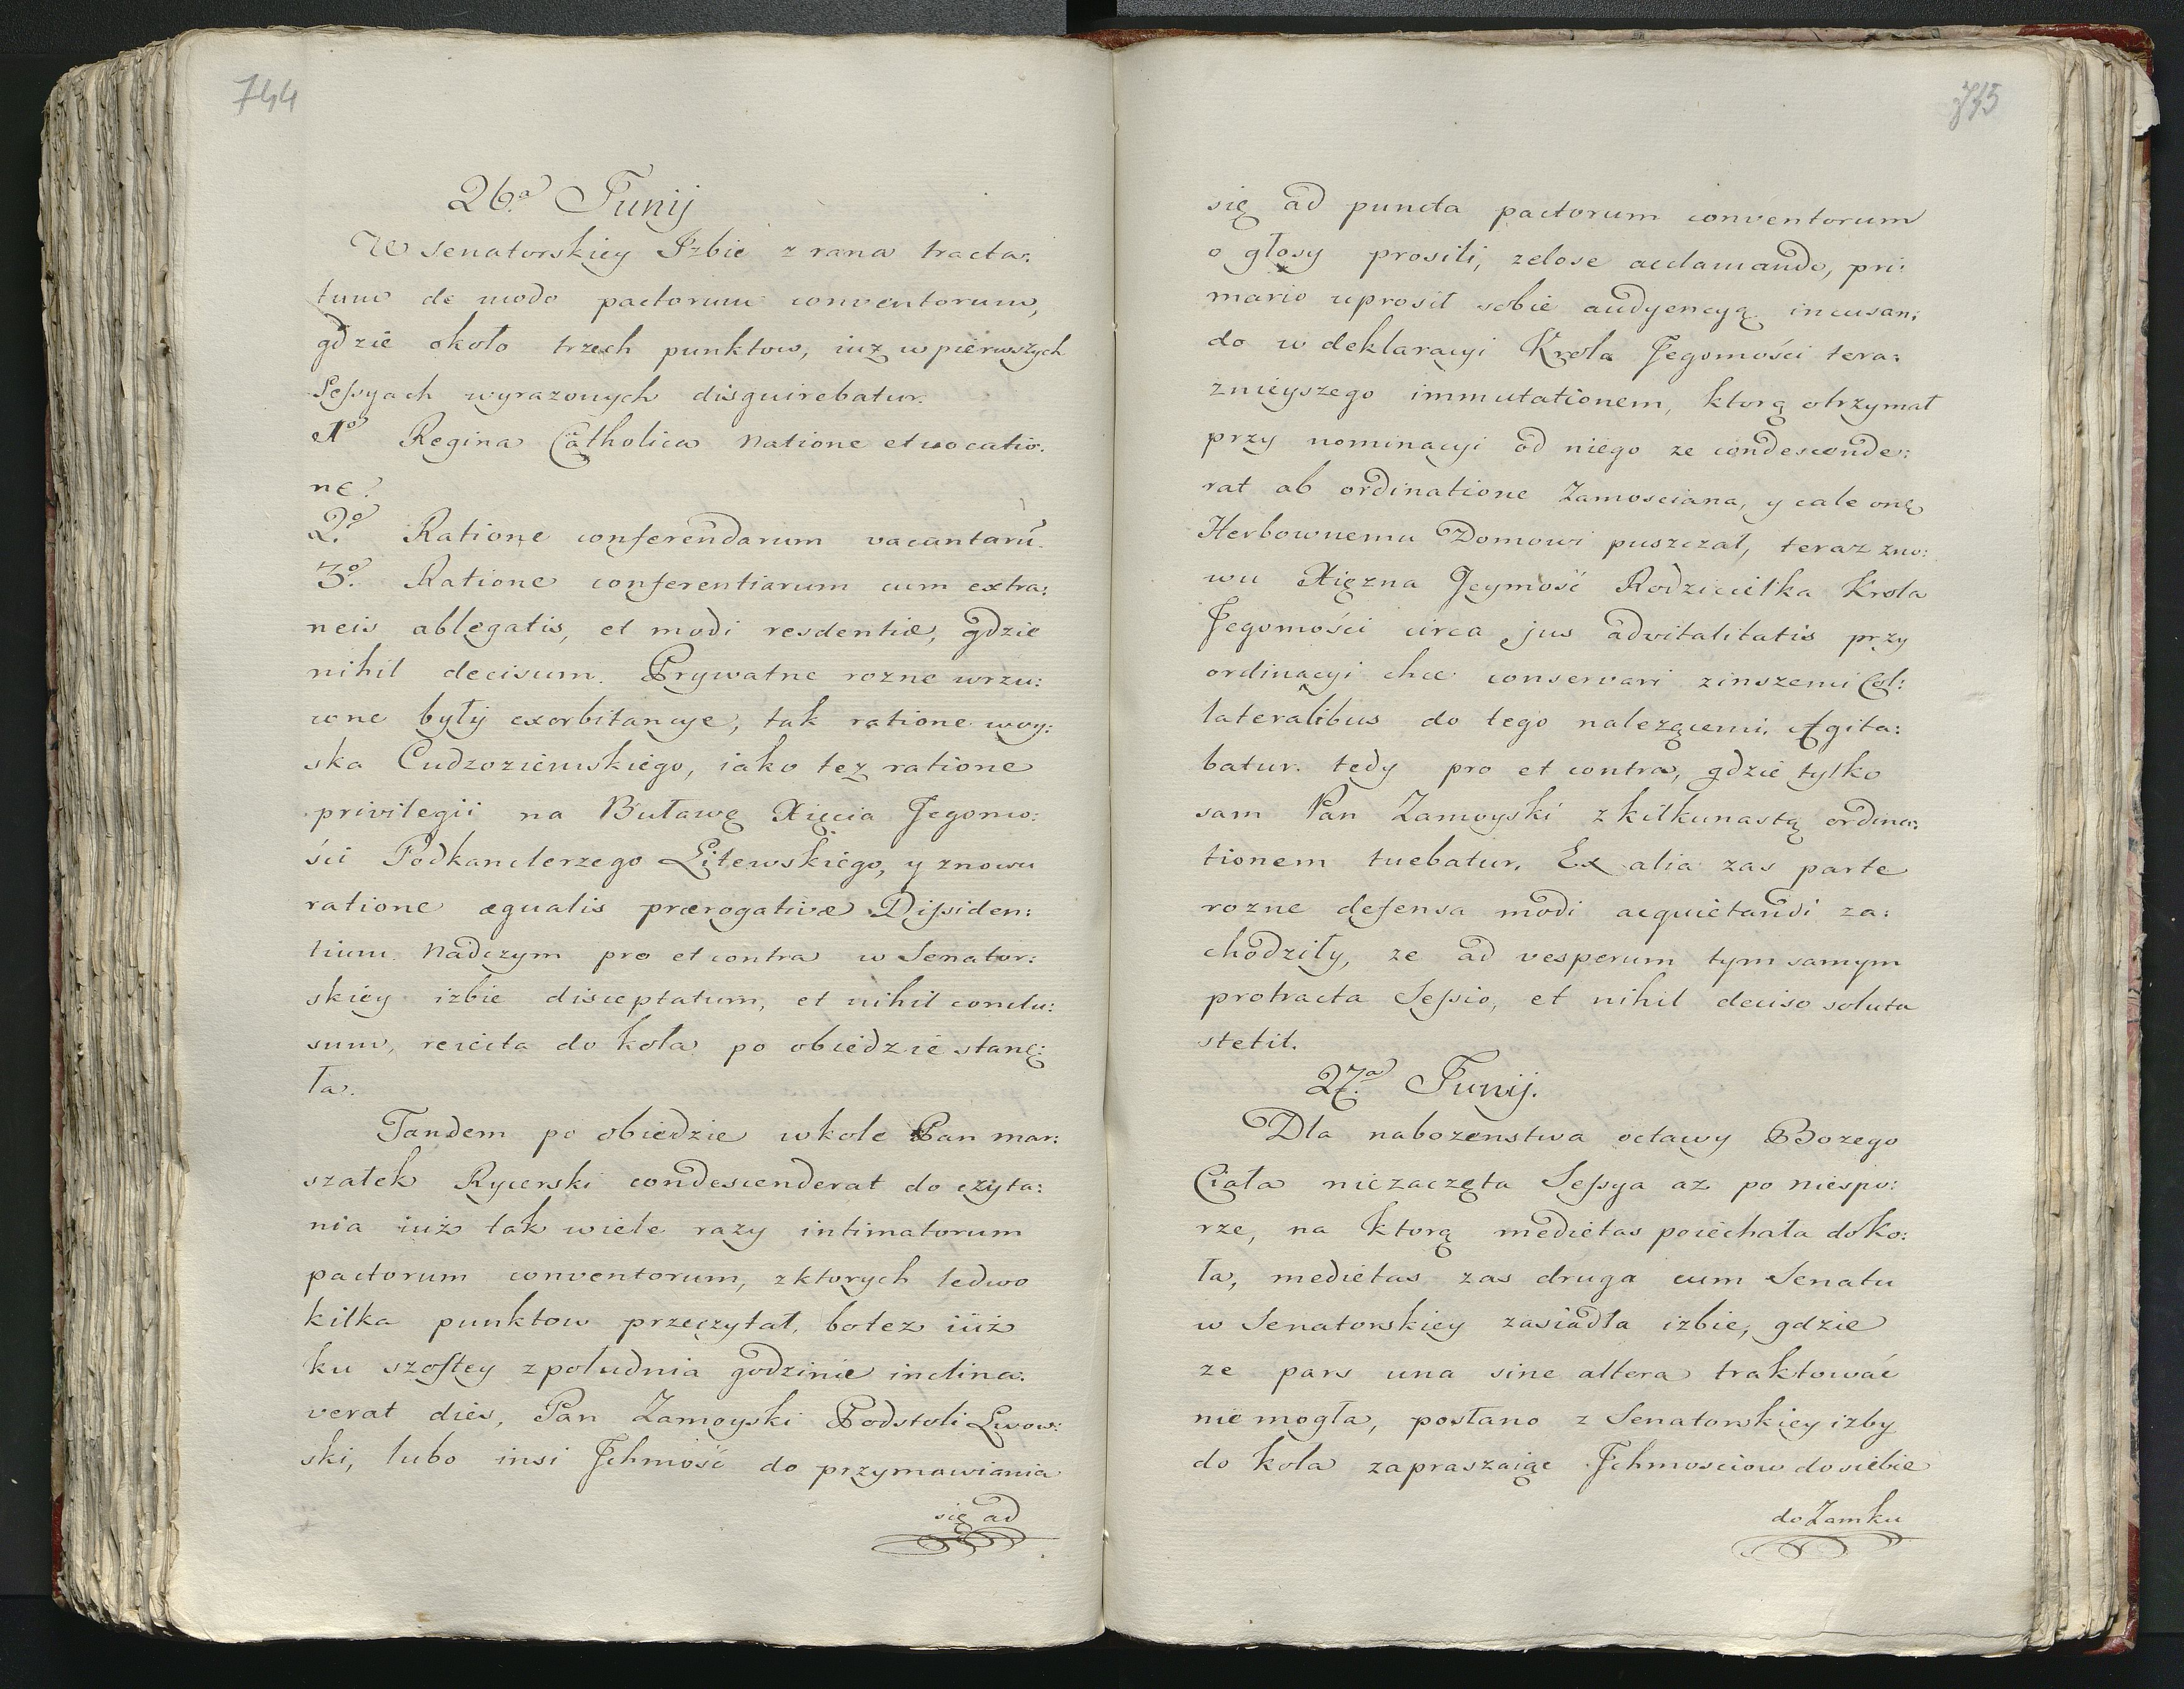 744
26.ª Junij
W Senatorskiey Izbie z rana tracta:
tum de modo pactorum conventorum,
gdzie około trzech punktow, iuz w pierwszych
Sessyach wyrazonych disquirebatur.
1º Regina Catholica natione et vocatio:
ne.
2.º Ratione conferendarum vacantarũ.
3.º Ratione conferentiarum cum extra:
neis ablegatis, et modi resdentiæ, gdzie
nihil decisum. Prywatne rozne wrzu:
cone były exorbitancye, tak ratione woy:
ska Cudzoziemskiego, iako tez ratione
privilegii na Buławę Xięcia Jegomo:
ści Podkanclerzego Litewskiego, y znowu
ratione æqualis prærogativæ Dissiden:
tium. Nadczym pro et contra w Senator:
skiey izbie disceptatum, et nihil conclu:
sum, reiecta do koła po obiedzie stanę:
ła.
Tandem po obiedzie w kole Pan mar:
szałek Rycerski condescenderat do czyta:
nia iuż tak wiele razy intimatorum
pactorum conventorum, z ktorych ledwo
kilka punktow przeczytał, botez iuż
ku szostey z południa godzinie inclina:
verat dies, Pan Zamoyski Podstoli Lwow:
ski, lubo insi Jchmość do przymawiania
się ad
745
się ad puncta pactorum conventorum
o głosy prosili, zelose acclamando, pri:
mario uprosił sobie audyencyą incusan:
do w deklaracyi Krola Jegomości tera:
znieyszego immutationem, ktorą otrzymał
przy nominacyi od niego ze condescende:
rat ab ordinatione Zamosciana, y cale onę
Herbownemu Domowi puszczał, teraz zno:
wu Xięzna Jeymość Rodzicielka Krola
Jegomości circa jus advitalitatis przy
ordinacyi chce conservari z inszemi Col:
lateralibus do tego nalezącemi. Agita:
batur tedy pro et contra, gdzie tylko
sam Pan Zamoyski z kilkunastą ordina:
tionem tuebatur. Ex alia zas parte
rozne defensa modi acquietandi za:
chodziły, ze ad vesperum tym samym
protracta Sessio, et nihil deciso soluta
stetit.
27.ª Junij.
Dla nabozenstwa octawy Bozego
Ciała niezaczęta Sessya az po niespo:
rze, na ktorą medietas poiechała do ko:
ła, medietas zas druga cum Senatu
w Senatorskiey zasiadła izbie, gdzie
ze pars una sine altera traktować
nie mogła, posłano z Senatorskiey izby
do koła zapraszaiąc Jchmosciow do siebie
do Zamku